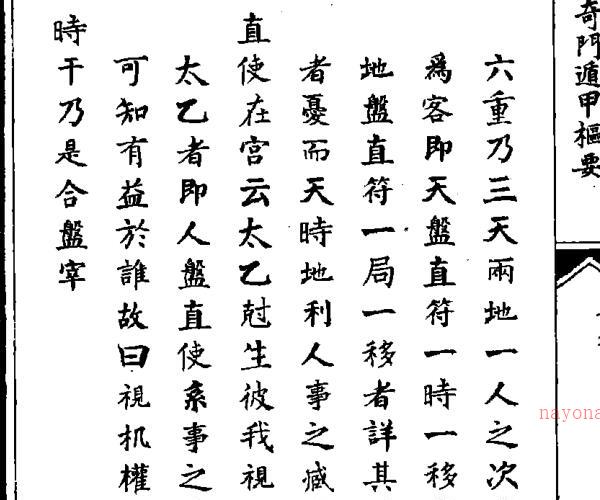 奇門遁甲樞要
六重乃三天兩地一人之次
爲客即天盤直符一時一移
地盤直符一局一移者詳其
者憂而天時地利人事之臧
直使在宮云太乙尅生彼我視
太乙者即人盤直使系事之
可知有益於誰故曰視机權
時干乃是合盤宰
nayona